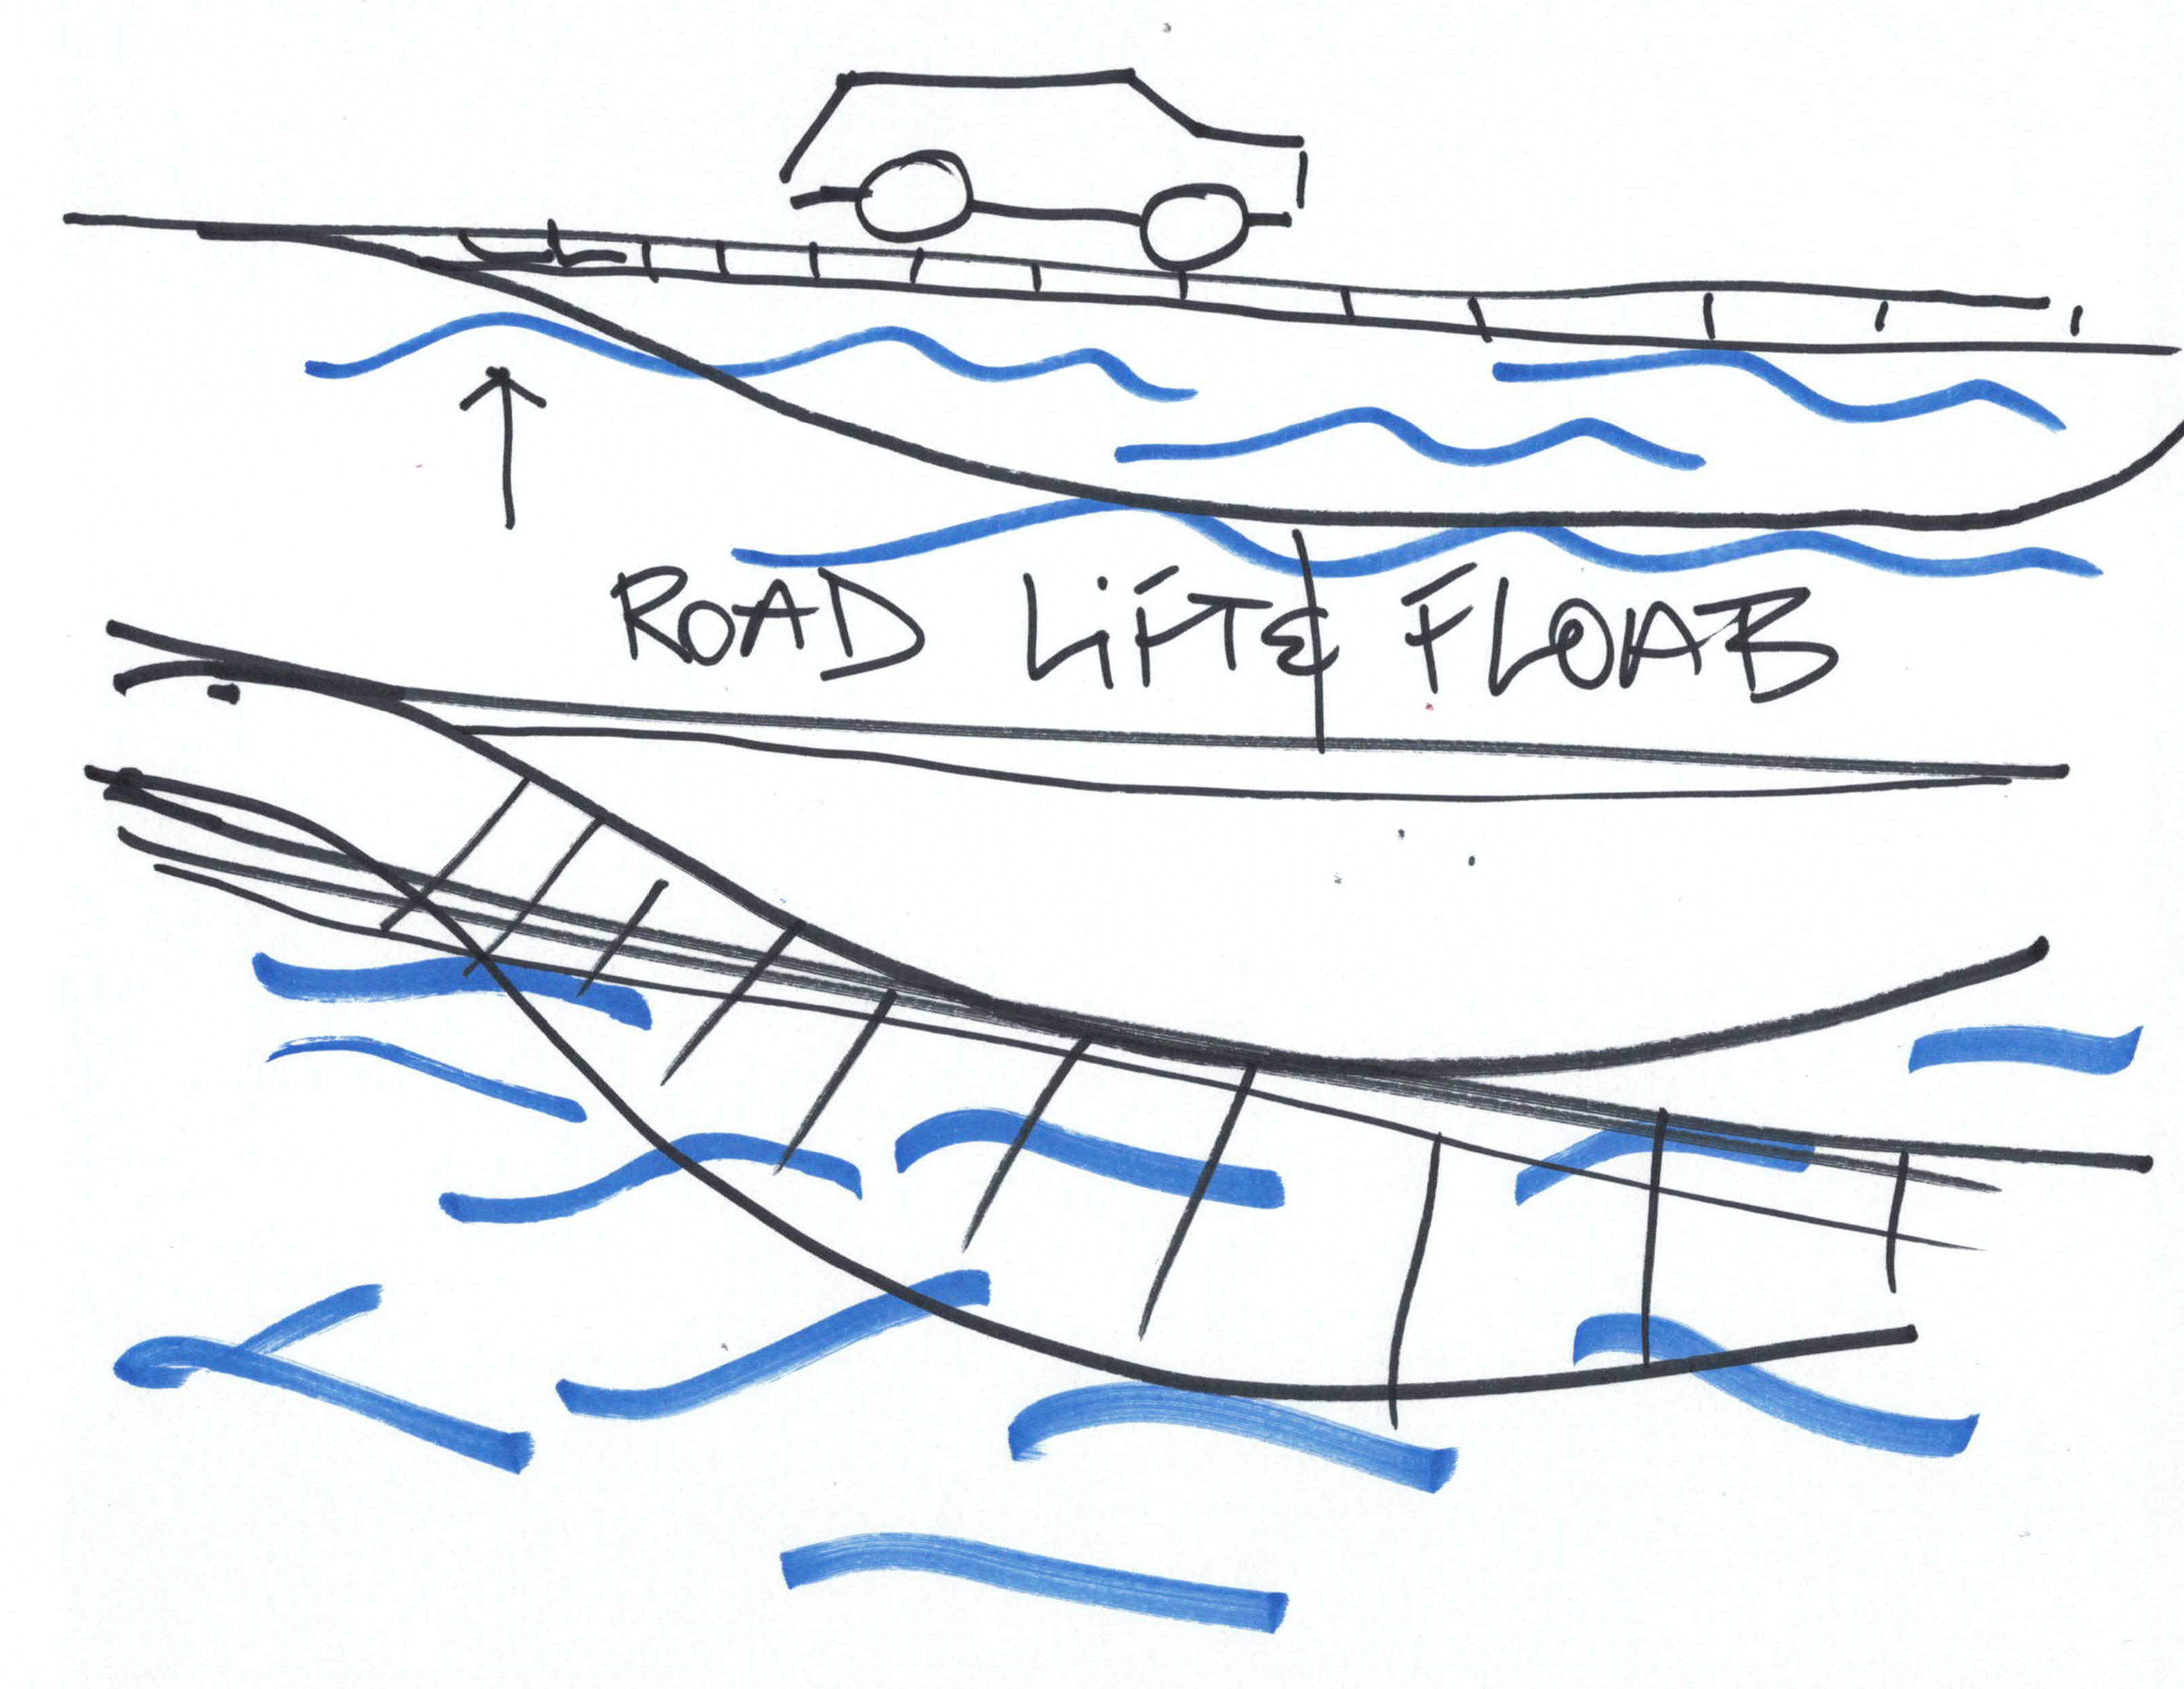 ROAD LiFT & FLOAB